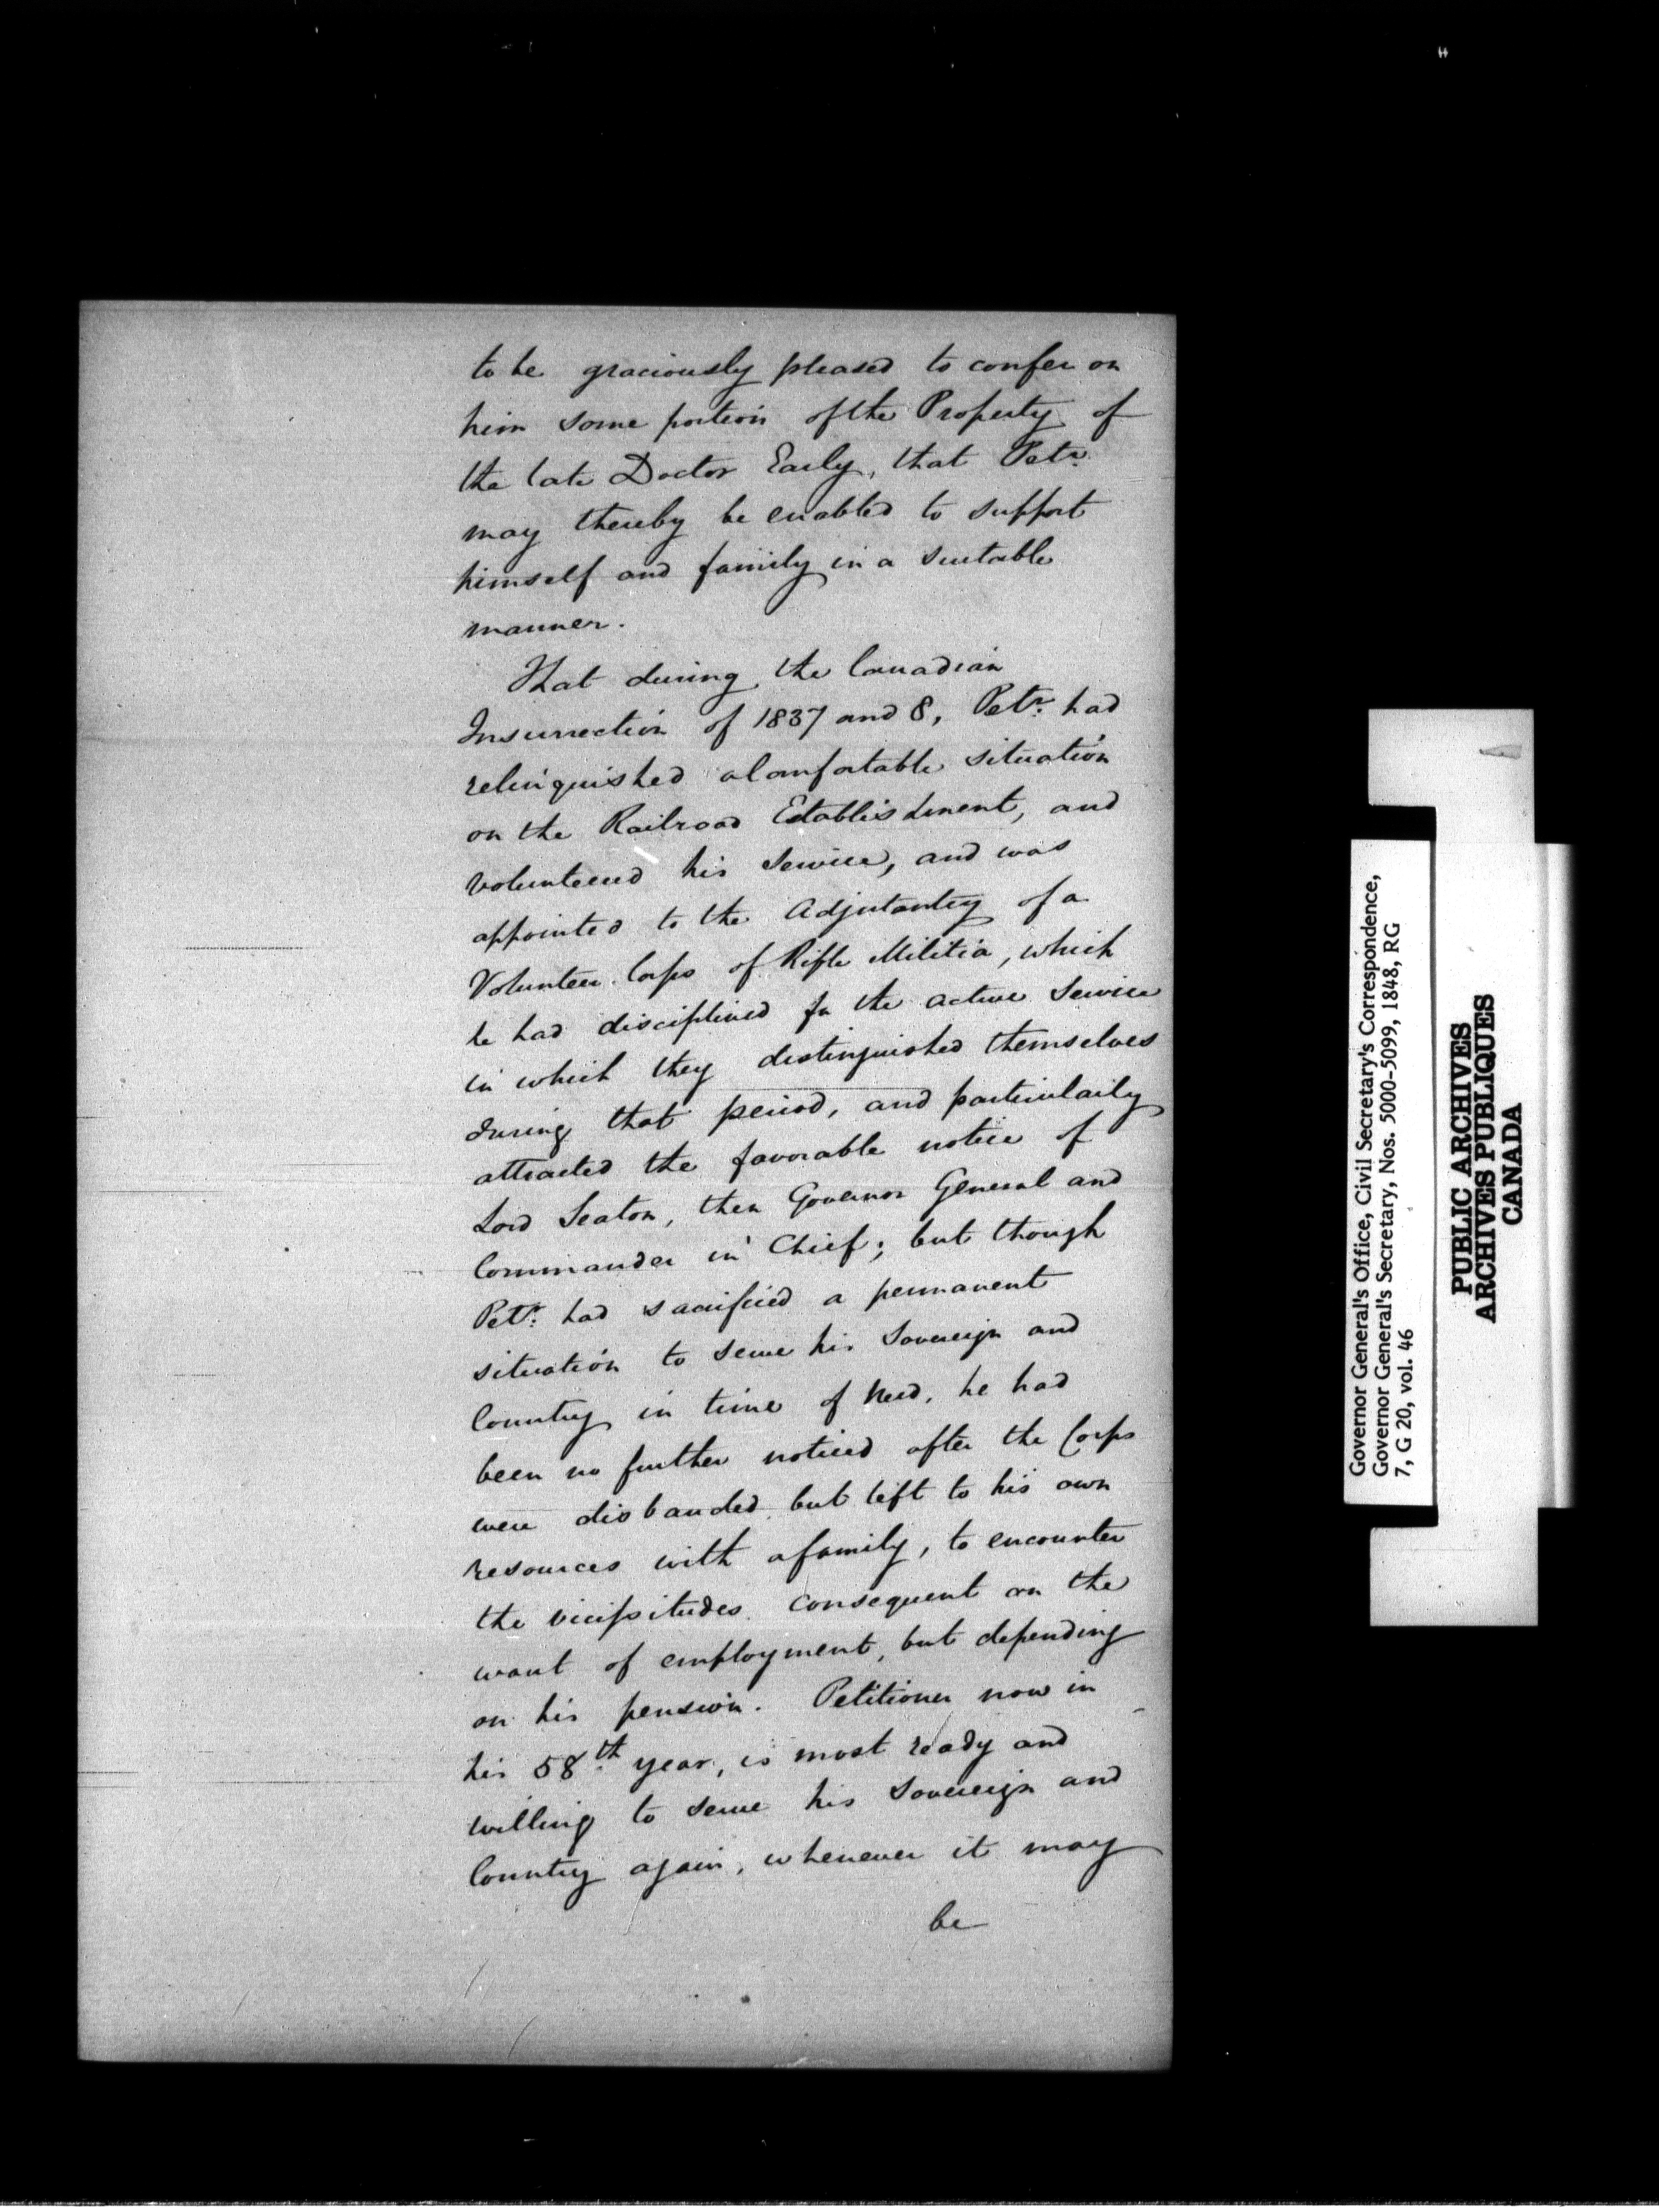 to be graciously pleased to confer on
him some portion of the Property of
the late Doctor Early, that Petr.
may thereby be enabled to support
himself and family in a suitable
manner.
That during the Canadian
Insurrection of 1837 and 8, Petr. had
relinquished a Comfortable situation
on the Railroad Establishment, and
volunteered his Service, and was
appointed to the Adjutantcy of a
Volunteer Corps of Rifle Militia, which
he had disciplined for the active Service
in which they distinguished themselves
during that period, and particularly
attracted the favorable notice of
Lord Seaton, then Governor General and
Commander in Chief; but though
Petr. had sacrificed a permanent
situation to serve his Sovereign and
Country in time of Need, he had
been no further noticed after the Corps
were disbanded, but left to his own
resources with a family, to encounter
the vicissitudes consequent on the
want of employment, but depending
on his pension. Petitioner now in
his 58th. year, is most ready and
willing to serve his Sovereign and
Country again, whenever it may
be
Governor General's Office, Civil Secretary's Correspondence,
Governor General's Secretary, Nos. 5000-5099, 1848, RG
7, G 20, vol. 46
PUBLIC ARCHIVES
ARCHIVES PUBLIQUES
CANADA